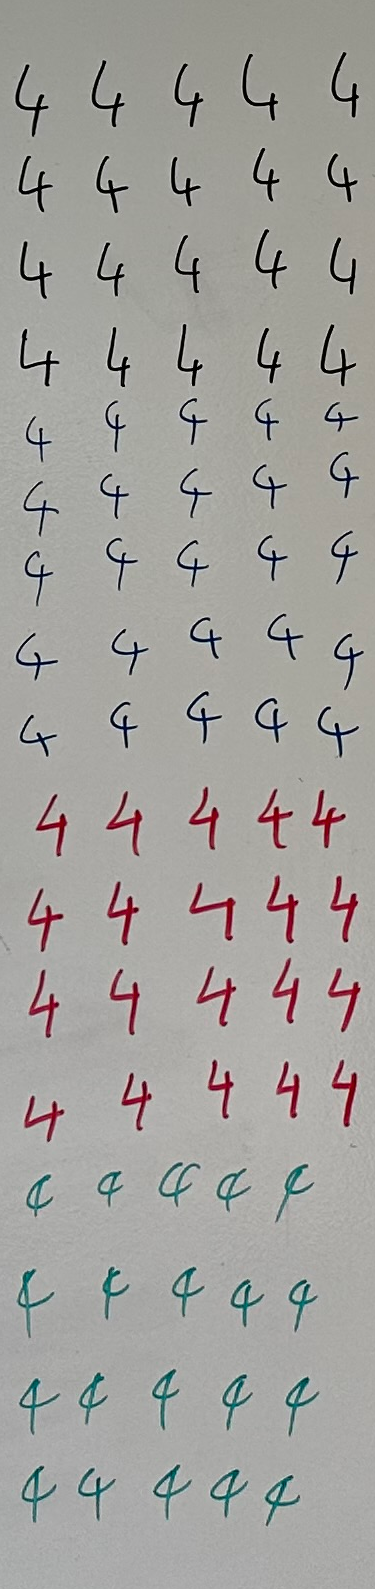 4 4 4 4 4
4 4 4 4 4
4 4 4 4 4
4 4 4 4 4
4 4 4 4 4
4 4 4 4 4
4 4 4 4 4
4 4 4 4 4
4 4 4 4 4
4 4 4 4 4
4 4 4 4 4
4 4 4 4 4
4 4 4 4 4
4 4 4 4 4
4 4 4 4 4
4 4 4 4 4
4 4 4 4 4